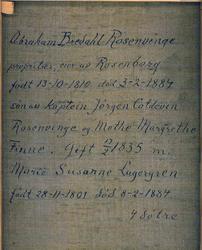 Abraham Bredahl Rosenvinge
proprietær, eier av Rosenborg
født 13-10-1810 død 3-2-1884
sønn av kaptein Jørgen Coldevin
Rosenvinge og Methe Margrethe
Finne. Gift 1835 m.
Marie Susanne Lagergren
født 28-11-1801 død 8-2-1887
4 døtre